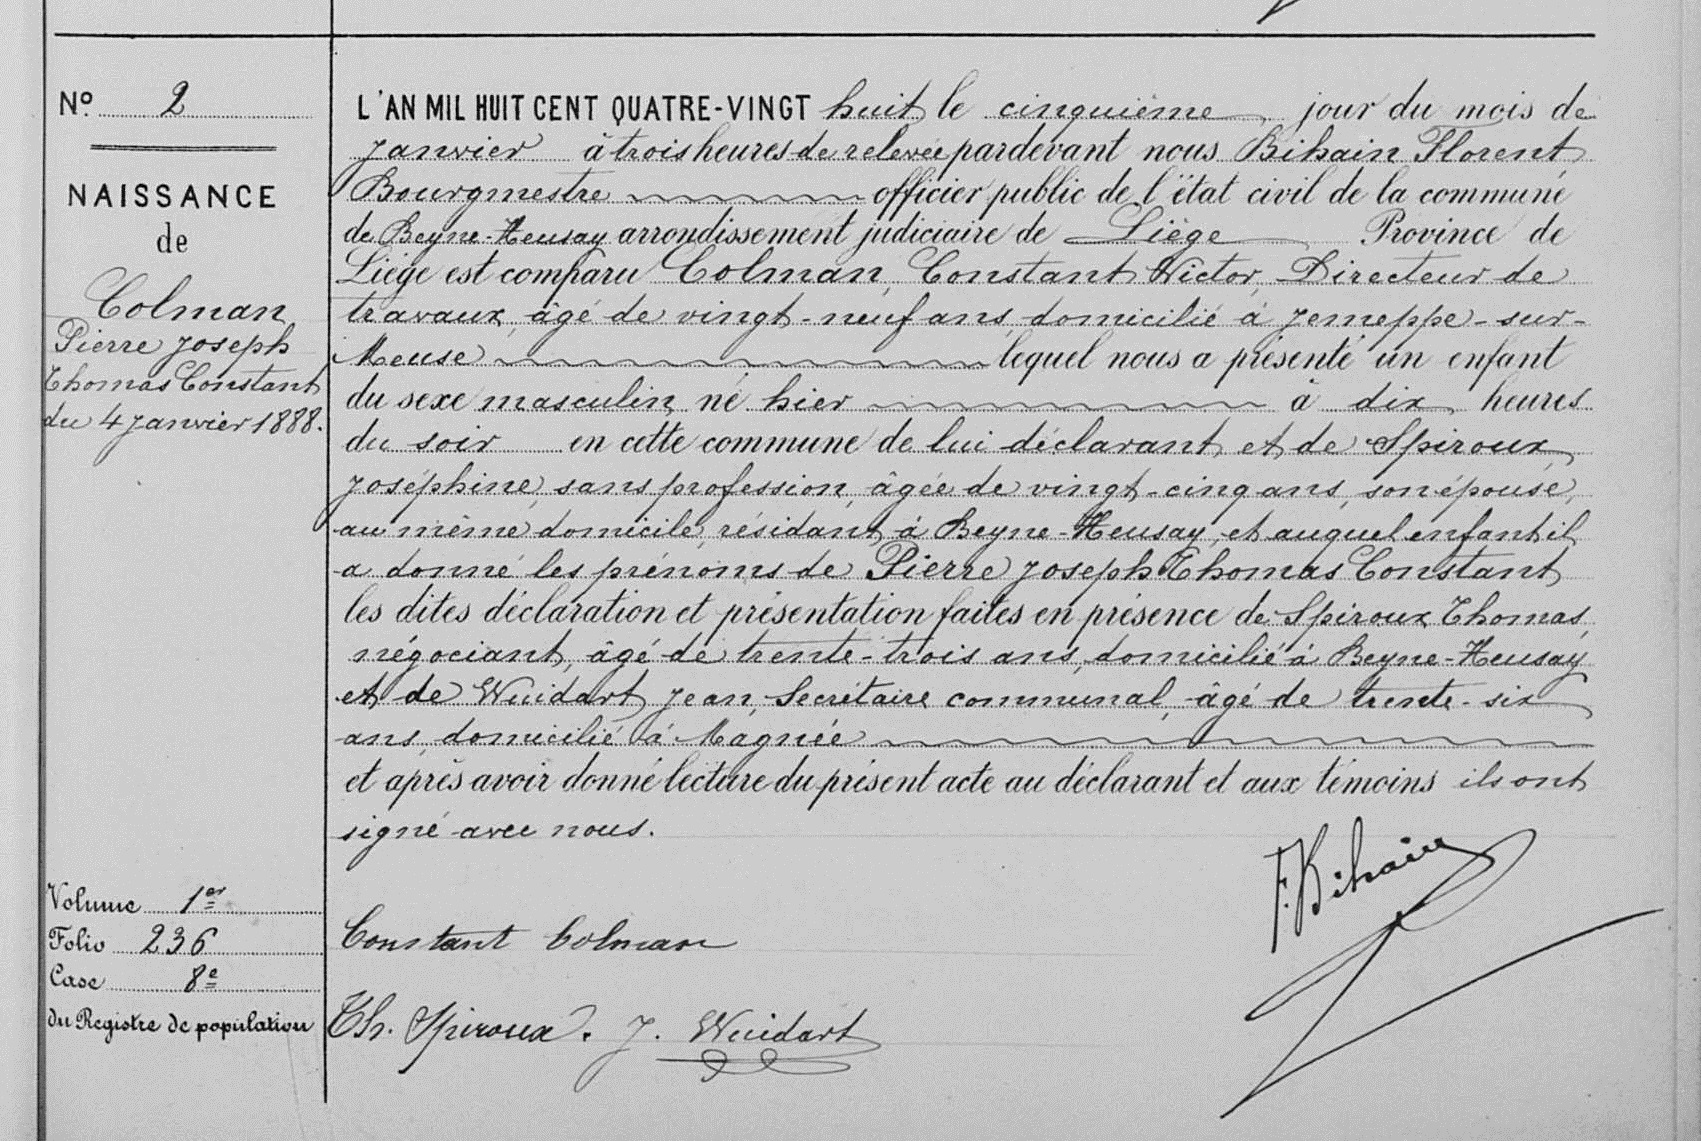 Nº 2
NAISSANCE
de
Colman
Pierre Joseph
Thomas Constant
du 4 Janvier 1888.
L'AN MIL HUIT CENT QUATRE-VINGT huit le cinquième jour du mois de
Janvier à trois heures de relevée pardevant nous Bihain Florent
Bourgmestre officier public de l'état civil de la commune
de Beyne-Heusay arrondissement judiciaire de Liège Province de
Liége est comparu Colman, Constant Victor, Directeur de
travaux, âgé de vingt-neuf ans, domicilié à Jemeppe-sur-
Meuse lequel nous a présenté un enfant
du sexe masculin, né hier à dix heures
du soir en cette commune de lui déclarant et de Spiroux,
Joséphine, sans profession, âgée de vingt-cinq ans, son épouse,
au même domicile, résidant à Beyne-Heusay, et auquel enfant il
a donné les prénoms de Pierre Joseph Thomas Constant
les dites déclaration et présentation faites en présence de Spiroux Thomas,
négociant, âgé de trente-trois ans, domicilié à Beyne-Heusay
et de Wuidart Jean, Secrétaire communal, âgé de trente-six
ans, domicilié à Magnée
et après avoir donné lecture du présent acte au déclarant et aux témoins ils ont
signé avec nous.
F. Bihain
Constant Colman
Th. Spiroux. J. Wuidart
Volume 1er
Folio 236
Case 8e
du Registre de population